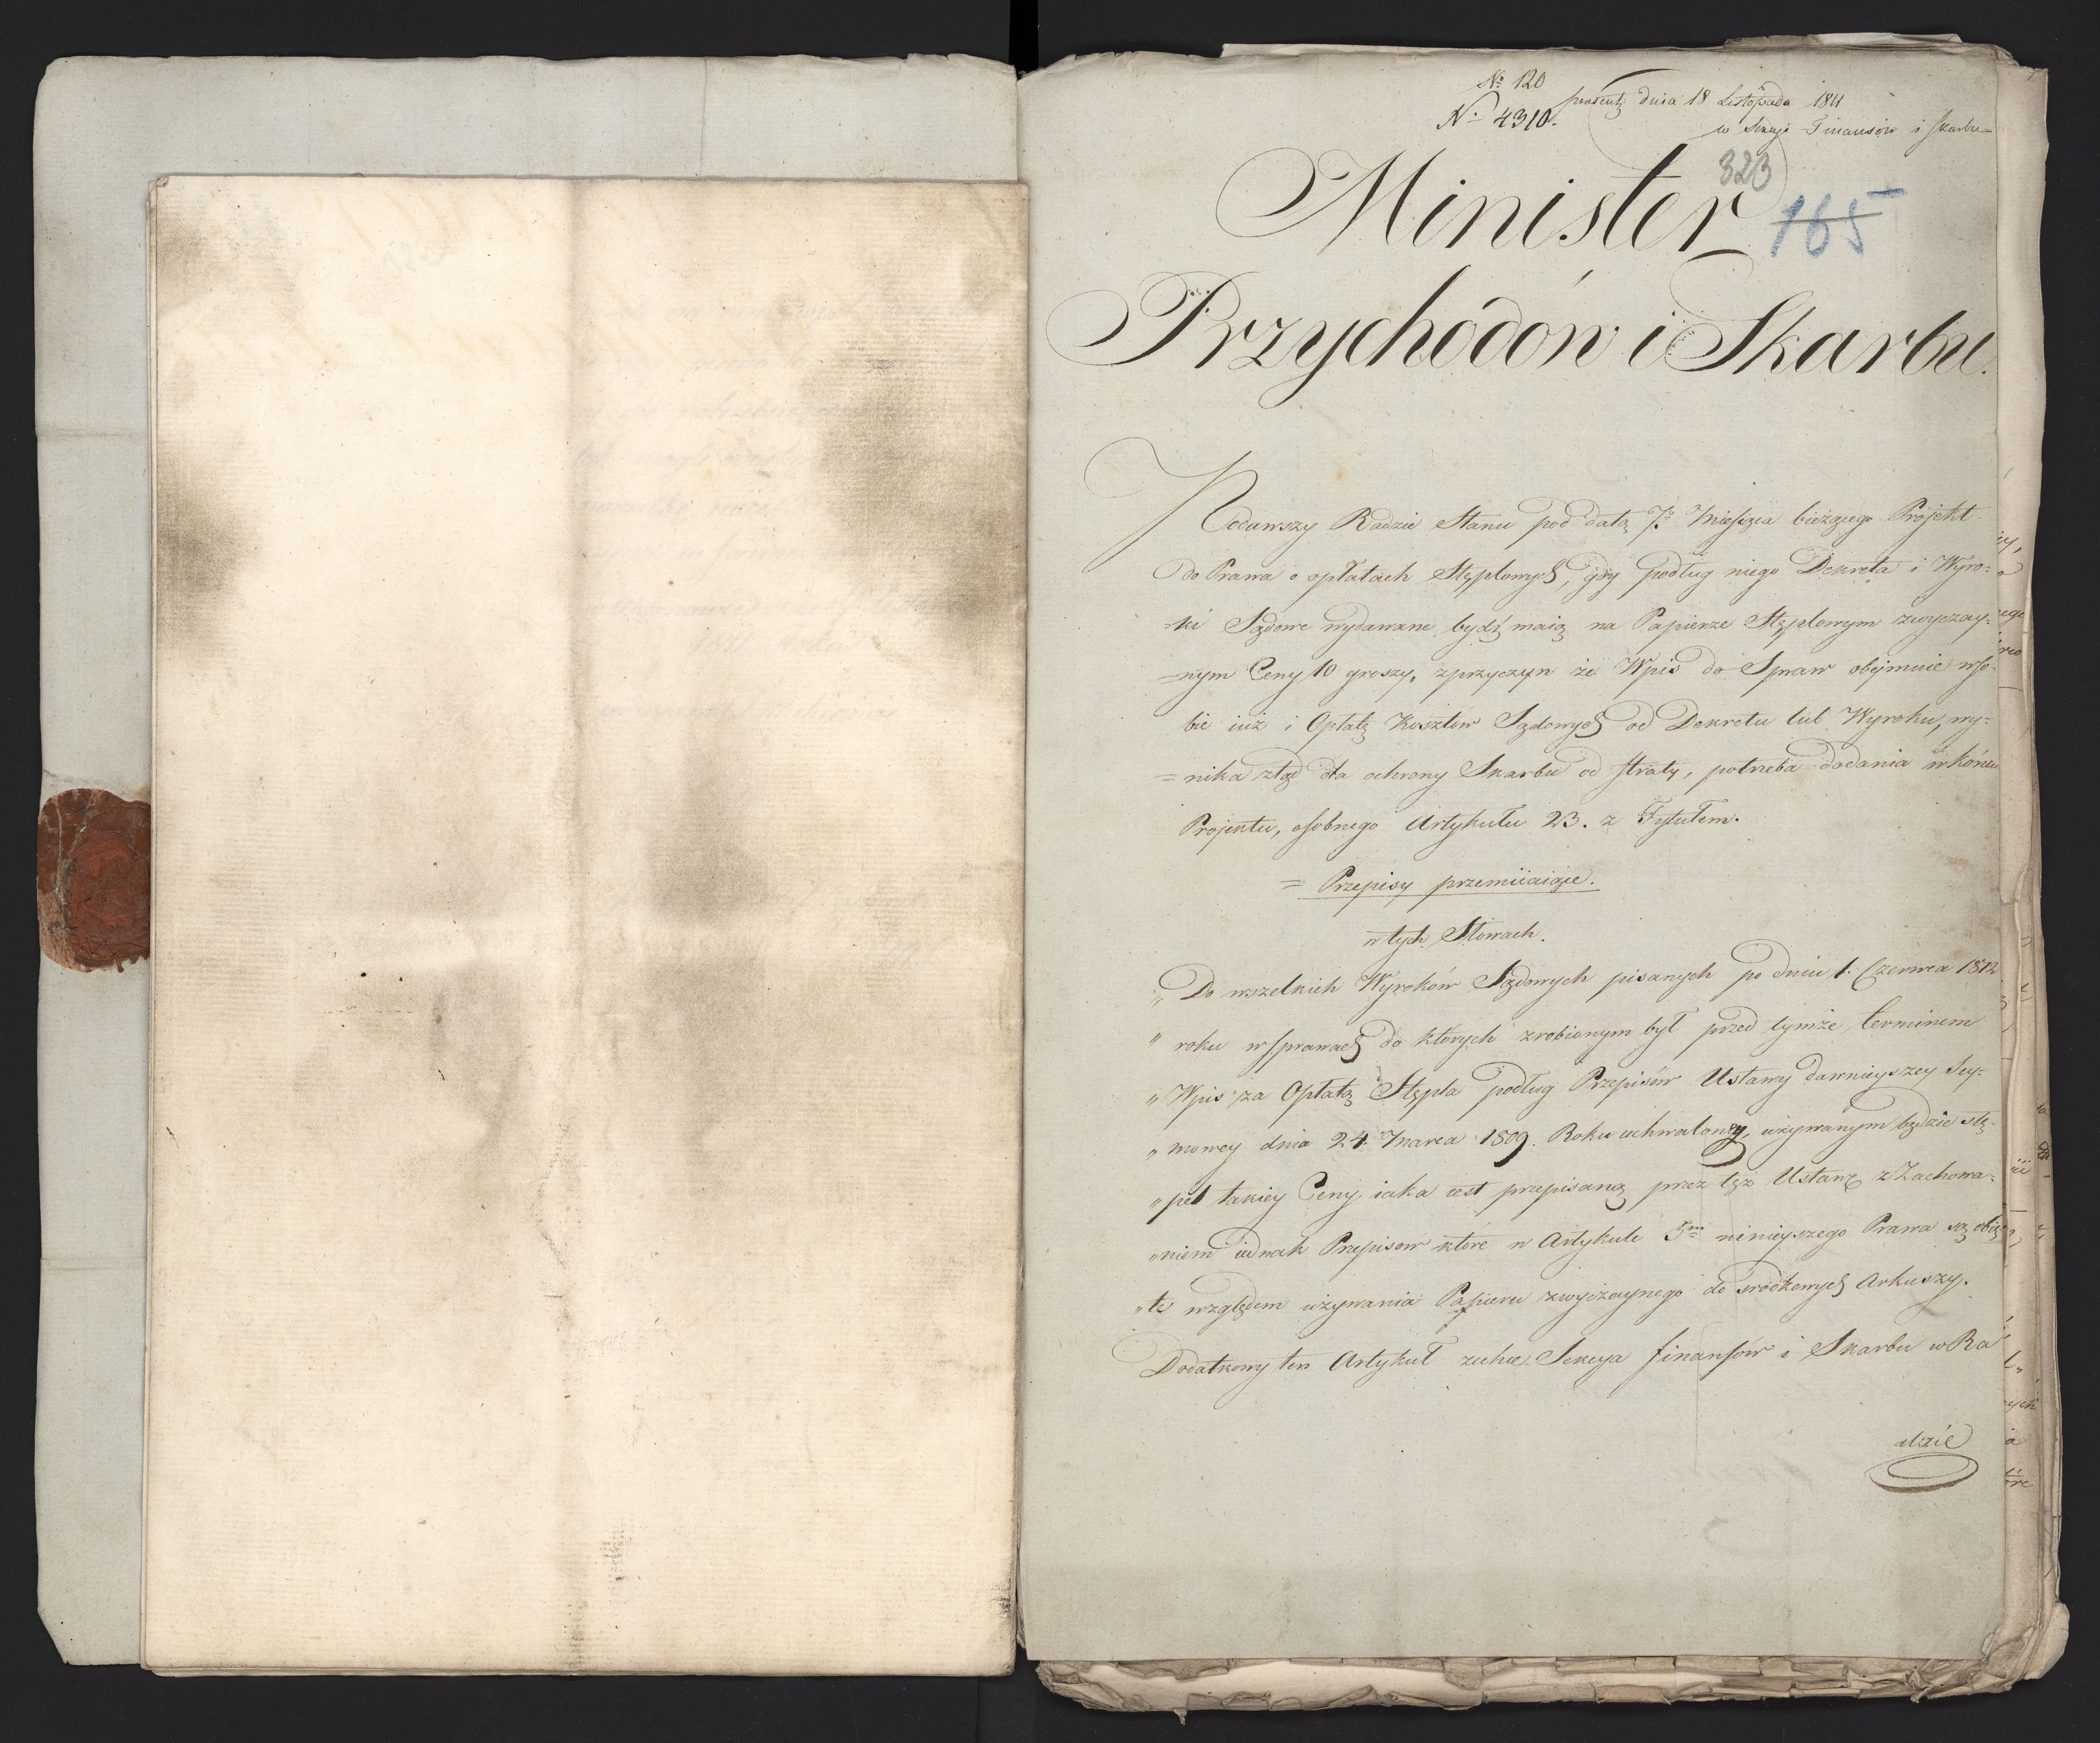 No 120
No 4310.
prasent: dnia 18 Listopada 1811
w Sekcyi Finansów i Skarbu
323
165
Minister
Przychodów i Skarbu.
Podawszy Radzie Stanu pod datą 7o Miesiąca bieżącego Projekt
do Prawa o opłatach Stęplowych, gdy podług niego Dekreta i Wyro=
=ki Sądowe wydawane bydź maią na Papierze Stęplowym zwyczay=
=nym Ceny 10 groszy, z przyczyn że Wpis do Spraw obejmuie w so=
bie iuż i Opłatę Kosztów Sądowych od Dekretu lub Wyroku, wy=
=nika ztąd dla ochrony Skarbu od straty, potrzeba dodania w końcu
Projektu, osobnego Artykułu 23. z Tytułem.
= Przepisy przemiiaiące.
w tych Słowach.
„ Do wszelkich Wyroków Sądowych pisanych po dniu 1. Czerwca 1812
„ roku w sprawach do których zrobionym był przed tymże terminem
„ Wpis za Opłatą Stępla podług Przepisów Ustawy dawnieyszey Sey=
„ mowey dnia 24. Marca 1809. Roku uchwaloney, używanym będzie stę=
„ pel takiey Ceny iaka iest przepisaną przez tęż Ustawę z Zachowa=
„ niem iednak Przepisow które w Artykule 5m ninieyszego Prawa są obię
„ te względem używania Papieru zwyczaynego do srodkowych Arkuszy.
Dodatkowy ten Artykuł zechce Sekcya finansów i Skarbu w Ra
dzie